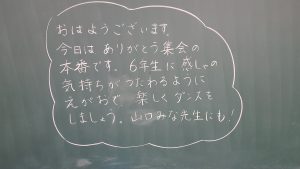 おはようございます。
今日は ありがとう集会の
本番です。6年生に 感しゃの
気持ちが つたわるように
えがおで 楽しく ダンスを
しましょう。山口みな先生にも!